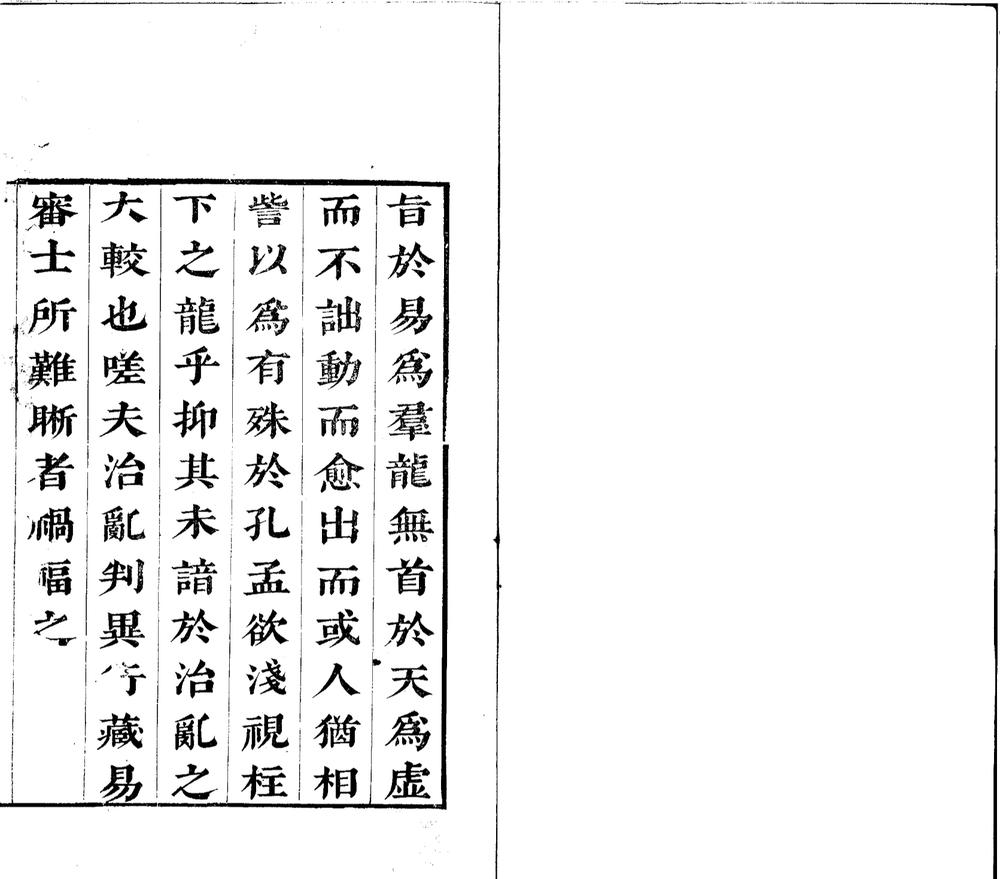 旨於易爲羣龍無首於天爲虛
而不詘動而愈出而或人猶相
訾以爲有殊於孔孟欲淺視柱
下之龍乎抑其未諳於治亂之
大較也嗟夫治亂判異行藏易
審士所難晣者禍福之